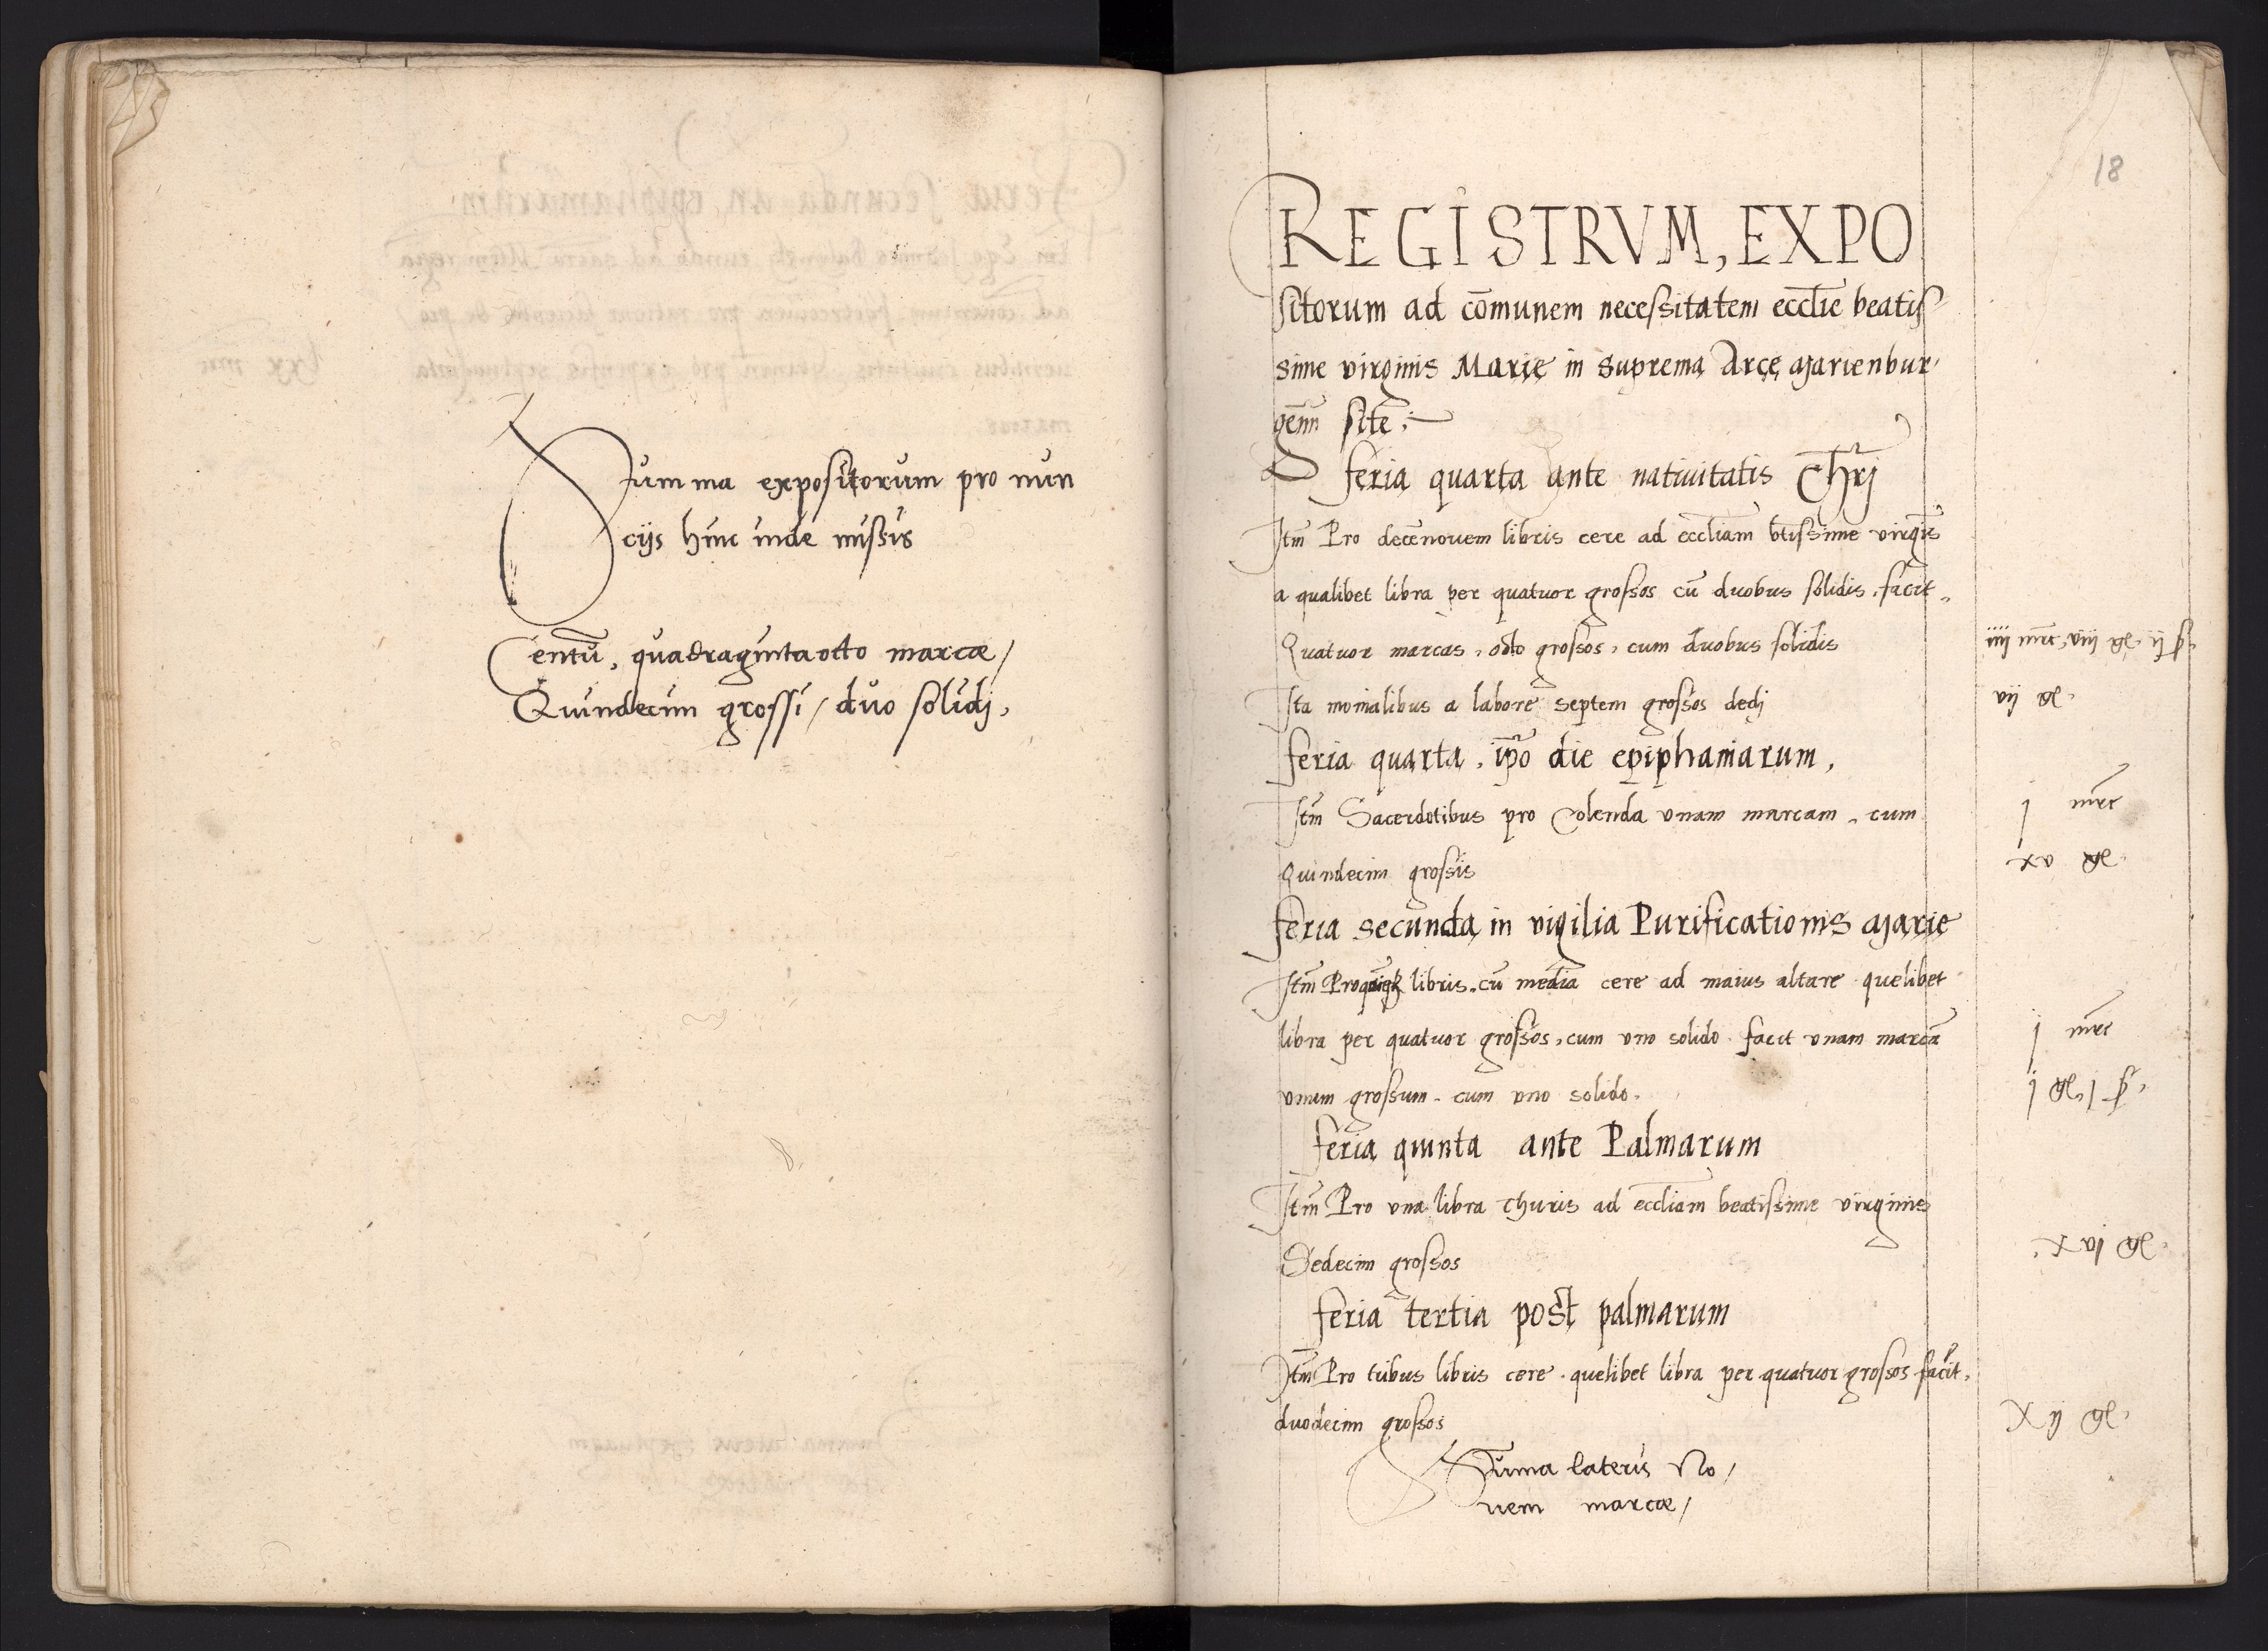 Summa expositorum pro nun
cijs hinc inde missis
Centū, quadragintaocto marcæ/
Quindecim grossi/ duo solidj,
18
REGISTRVM, EXPO
sitorum ad cōmunem necessitatem ecclīe beatis
sime virginis Marię in suprema Arcę Marienbur
geñn sitē :-
feria quarta ante nativitatis Chr̄j
Itm̄ Pro decēnovem libris cere ad eccliam btissime virgīs
a qualibet libra per quatvor grossos cū dvobus solidis, facit
Quatvor marcas, octo grossos, cum dvobus solidis
iiij mrc, viij gl. ij ẜ.
Ita monialibus a labore septem grossos dedj
vij gl.
feria quarta, ip̄o die epiphaniarum,
Itm̄ Sacerdotibus pro Colenda vnam marcam, cum
j mrc
Quindecim grossis
xv gl.
feria secunda in vigilia Purificationis Marię
Itm̄ Pro libris, cū media cere ad maius altare quelibet
libra per quatvor grossos, cum vno solido facit vnam marcā
j mrc
vnum grossum cum vno solido.
j gl, j ẜ.
feria quinta ante Palmarum
Itm̄ Pro vna libra thuris ad eccliam beatissime virginis
Sedecim grossos
xvj gl.
feria tertia post palmarum
Itm̄ Pro tribus libris cere quelibet libra per quatvor grossos facit,
duodecim grossos
xij gl.
Sūma lateris No/
uem marcæ/